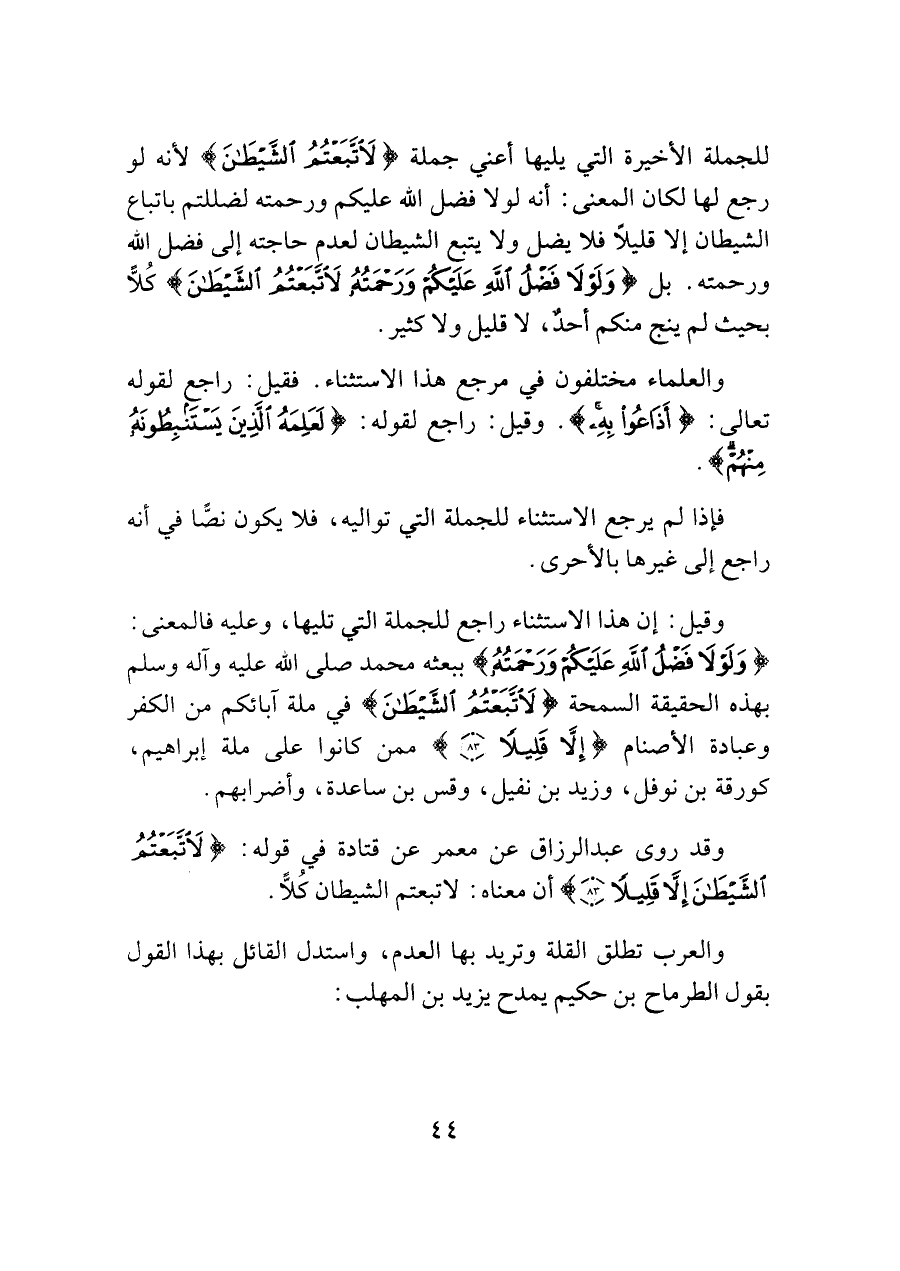 للجملة الأخيرة التي يليها أعني جملة ﴿لَاتَّبَعْتُمُ الشَّيْطَٰنَ﴾ لأنه لو
رجع لها لكان المعنى: أنه لولا فضل الله عليكم ورحمته لضللتم باتباع
الشيطان إلا قليلاً فلا يضل ولا يتبع الشيطان لعدم حاجته إلى فضل الله
ورحمته. بل ﴿وَلَوْلَا فَضْلُ ٱللَّهِ عَلَيْكُمْ وَرَحْمَتُهُۥ لَٱتَّبَعْتُمُ ٱلشَّيْطَٰنَ﴾ كُلاًّ
بحيث لم ينج منكم أحدٌ، لا قليل ولا كثير.
والعلماء مختلفون في مرجع هذا الاستثناء. فقيل: راجع لقوله
تعالى: ﴿أَذَاعُوا۟ بِهِۦ﴾. وقيل: راجع لقوله: ﴿لَعَلِمَهُ ٱلَّذِينَ يَسْتَنۢبِطُونَهُۥ
مِنْهُمْ﴾.
فإذا لم يرجع الاستثناء للجملة التي تواليه، فلا يكون نصًّا في أنه
راجع إلى غيرها بالأحرى.
وقيل: إن هذا الاستثناء راجع للجملة التي تليها، وعليه فالمعنى:
﴿وَلَوْلَا فَضْلُ ٱللَّهِ عَلَيْكُمْ وَرَحْمَتُهُۥ﴾ ببعثه محمد صلى الله عليه وآله وسلم
بهذه الحقيقة السمحة ﴿لَٱتَّبَعْتُمُ ٱلشَّيْطَٰنَ﴾ في ملة آبائكم من الكفر
وعبادة الأصنام ﴿إِلَّا قَلِيلًا ٨٣﴾ ممن كانوا على ملة إبراهيم،
كورقة بن نوفل، وزيد بن نفيل، وقس بن ساعدة، وأضرابهم.
وقد روى عبدالرزاق عن معمر عن قتادة في قوله: ﴿لَٱتَّبَعْتُمُ
ٱلشَّيْطَٰنَ إِلَّا قَلِيلًا ٨٣﴾ أن معناه: لاتبعتم الشيطان كُلاًّ.
والعرب تطلق القلة وتريد بها العدم، واستدل القائل بهذا القول
بقول الطرماح بن حكيم يمدح يزيد بن المهلب:
٤٤